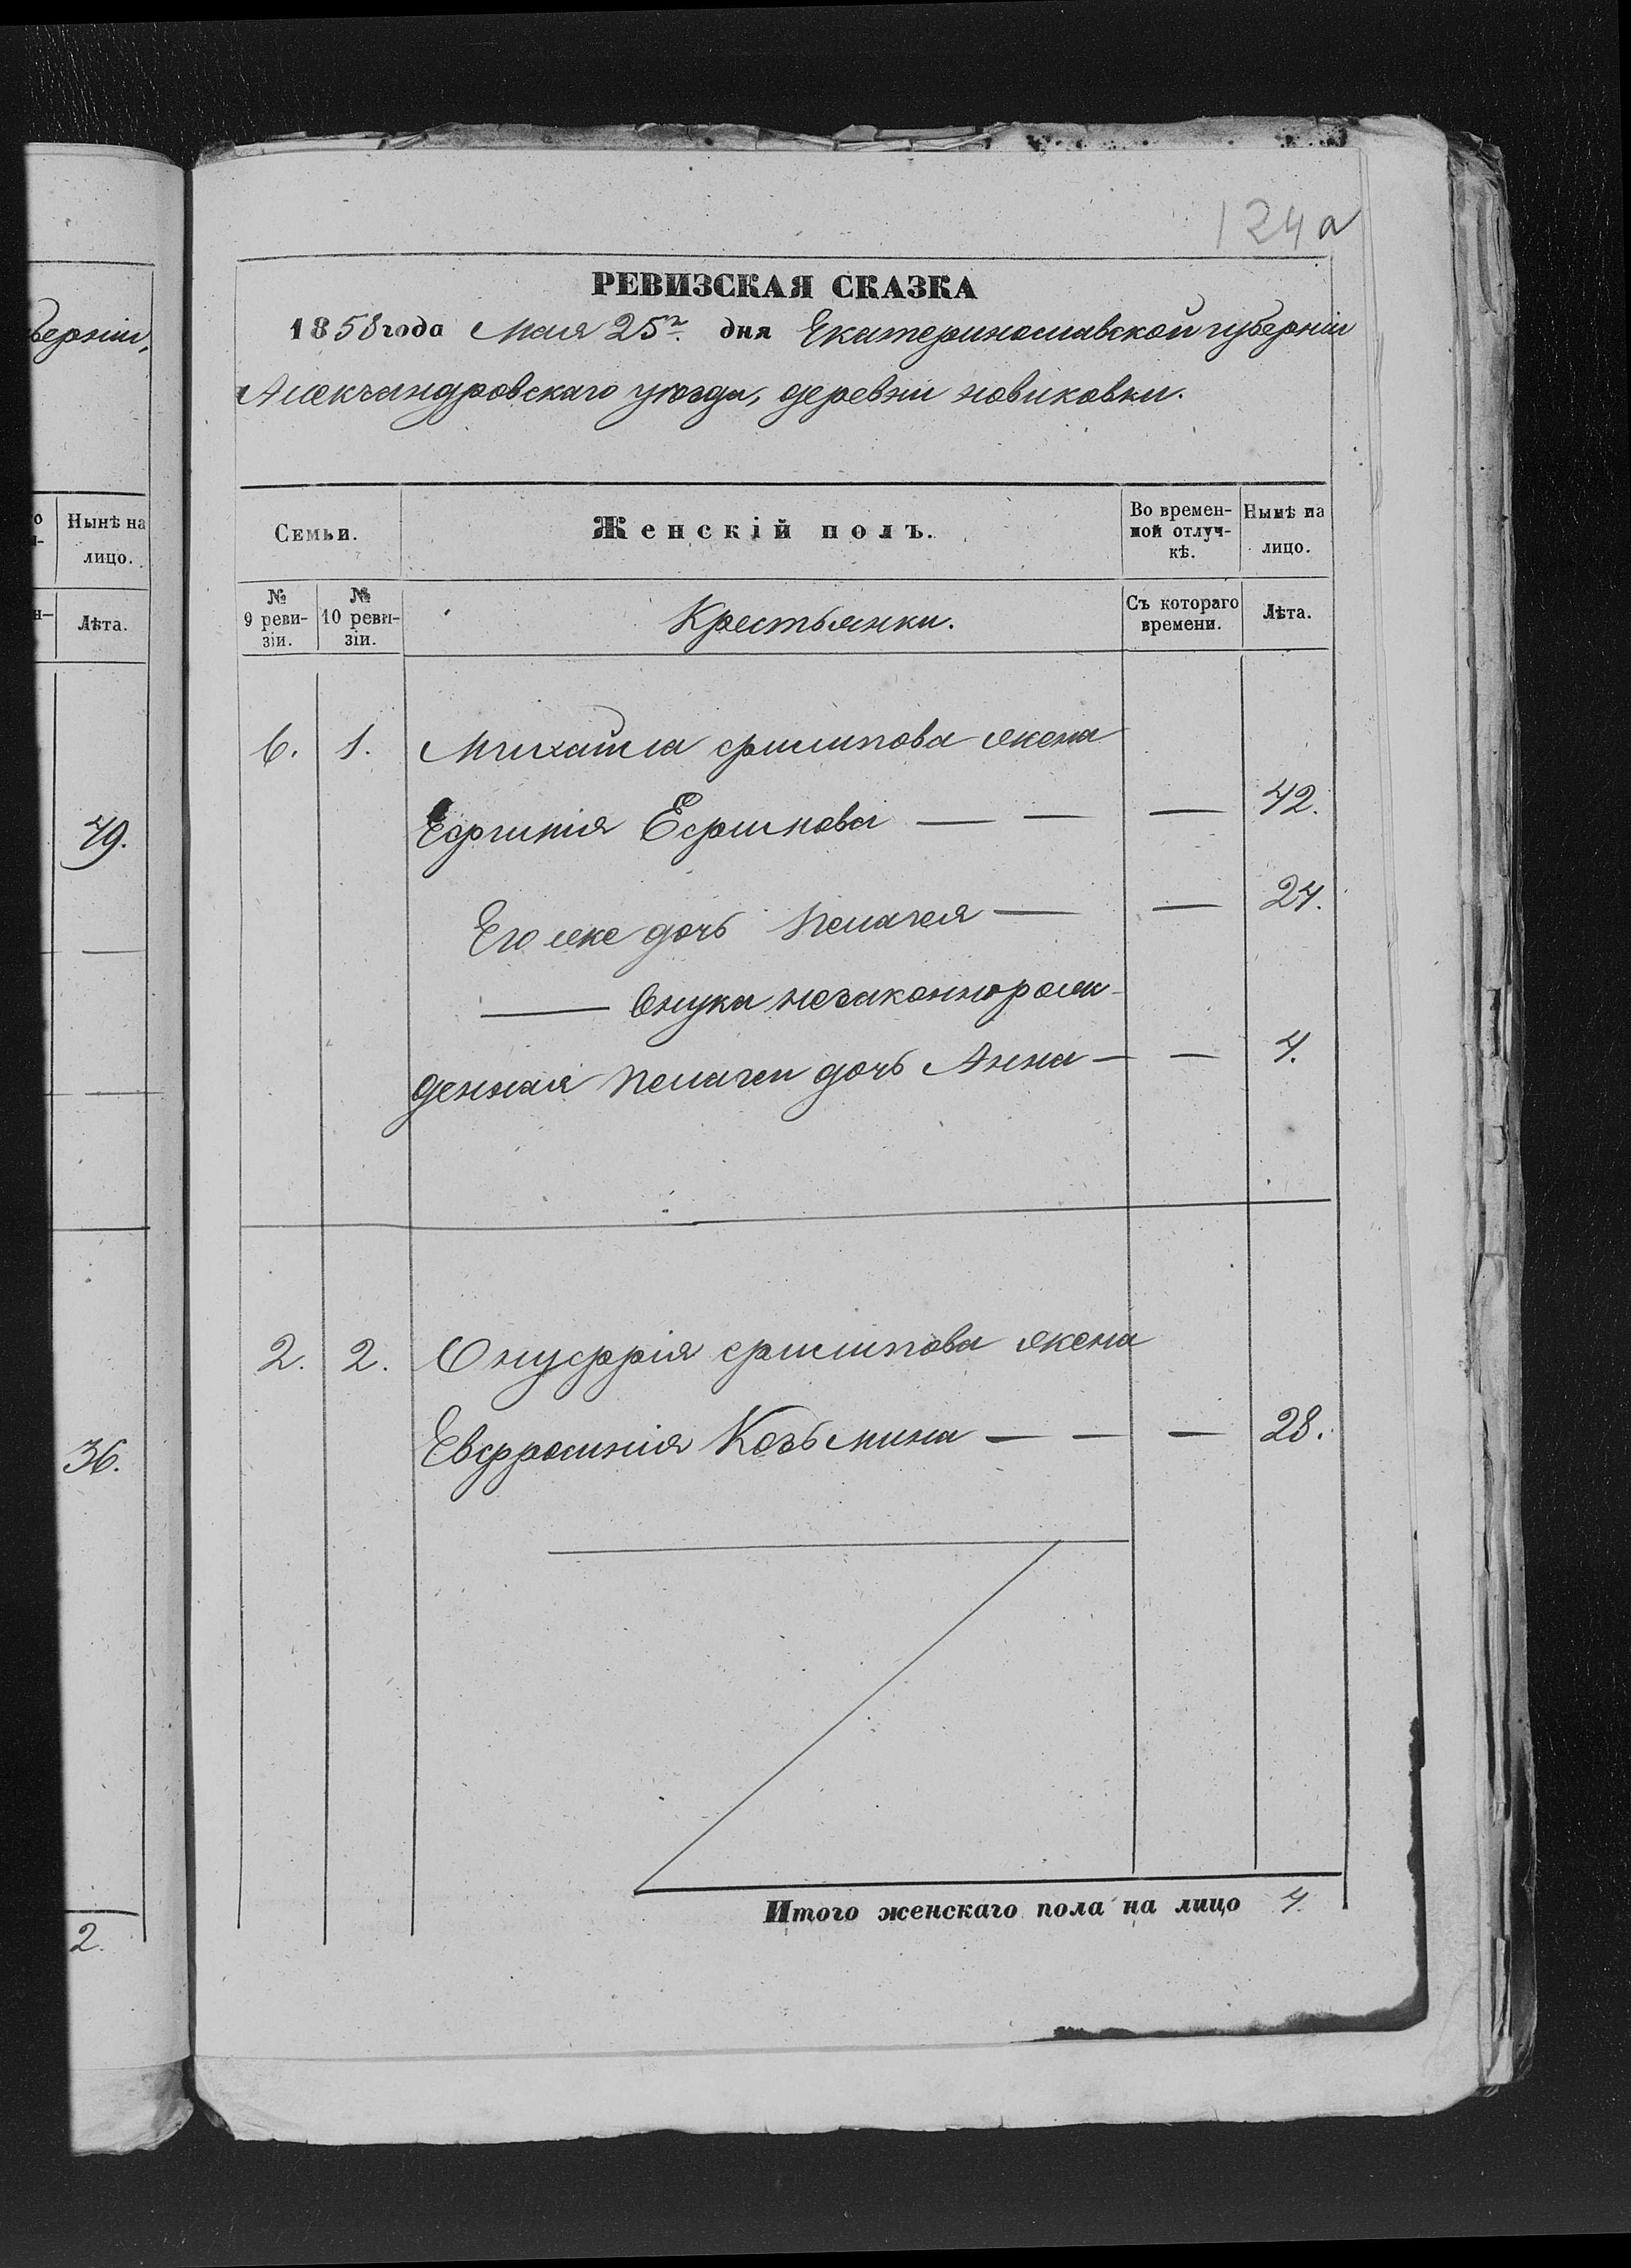 124а
РЕВИЗСКАЯ СКАЗКА
1858 года Мая 25го дня Екатеринославской губерніи
Александровскаго уѣзда, деревни новиковки.
Семьи.
Женскій полъ.
Во времен-
ной отлуч-
кѣ.
Нынѣ на
лицо.
№
9 реви-
зіи.
№
10 реви-
зіи.
Крестьянки.
Съ котораго
времени.
Лѣта.
6. 1. Михайла филипова жена
Ефимія Ефимова — — — 42.
Его же дочь пелагея — — 24.
— внука незаконнорож-
денная пелагеи дочь Анна — — 4.
2. 2. Онуфрія филипова жена
Евфросинія Козьмина — — — 28.
Итого женскаго пола на лицо 4.
берніи,
Нынѣ на
лицо.
Лѣта.
49.
36.
2.